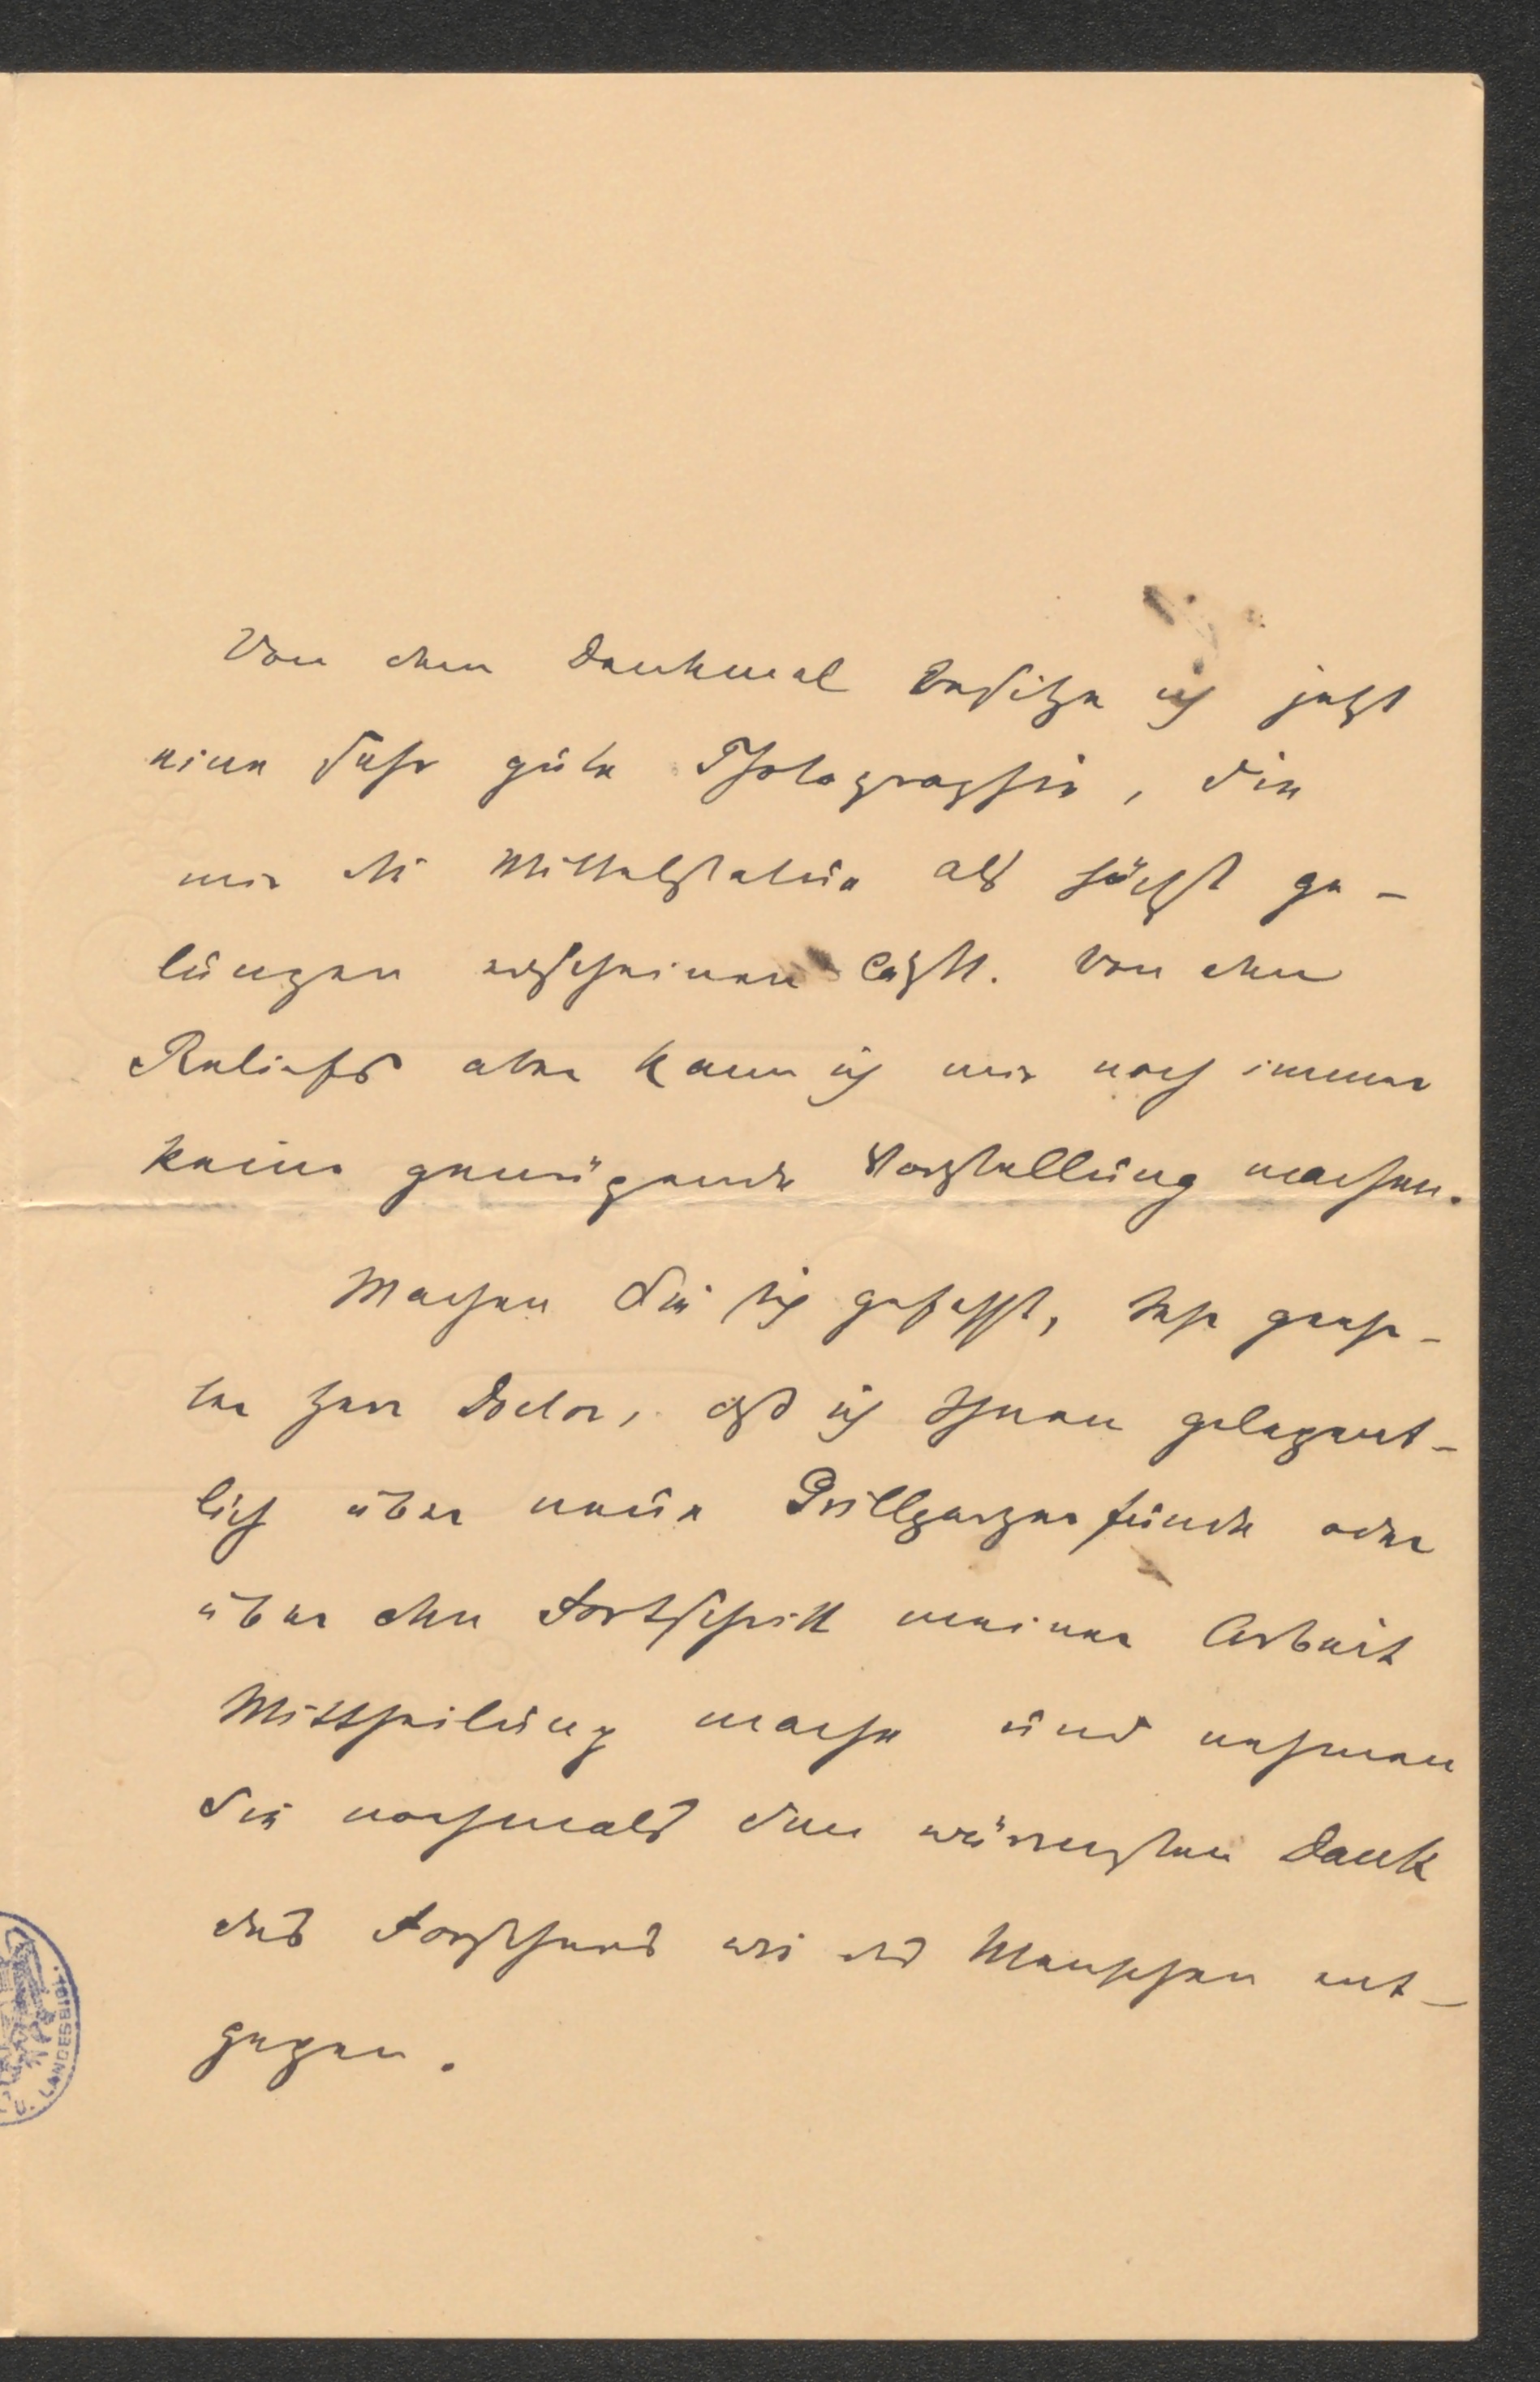 Von dem Denkmal besitze ich jetzt
eine sehr gute Photographie, die
mir die Mittelstatue als höchst ge-
lungen erscheinen läßt. Von den
Reliefs aber kann ich mir noch immer
keine genügende Vorstellung machen.
Machen Sie sich gefaßt, sehr geehr-
ter Herr Doctor, daß ich Ihnen gelegent-
lich über neue Grillparzerfunde oder
über den Fortschritt meiner Arbeit
Mittheilung mache und nehmen
Sie nochmals den wärmsten Dank
des Forschers wie des Menschen ent-
gegen.
U. LANDESBIBL.